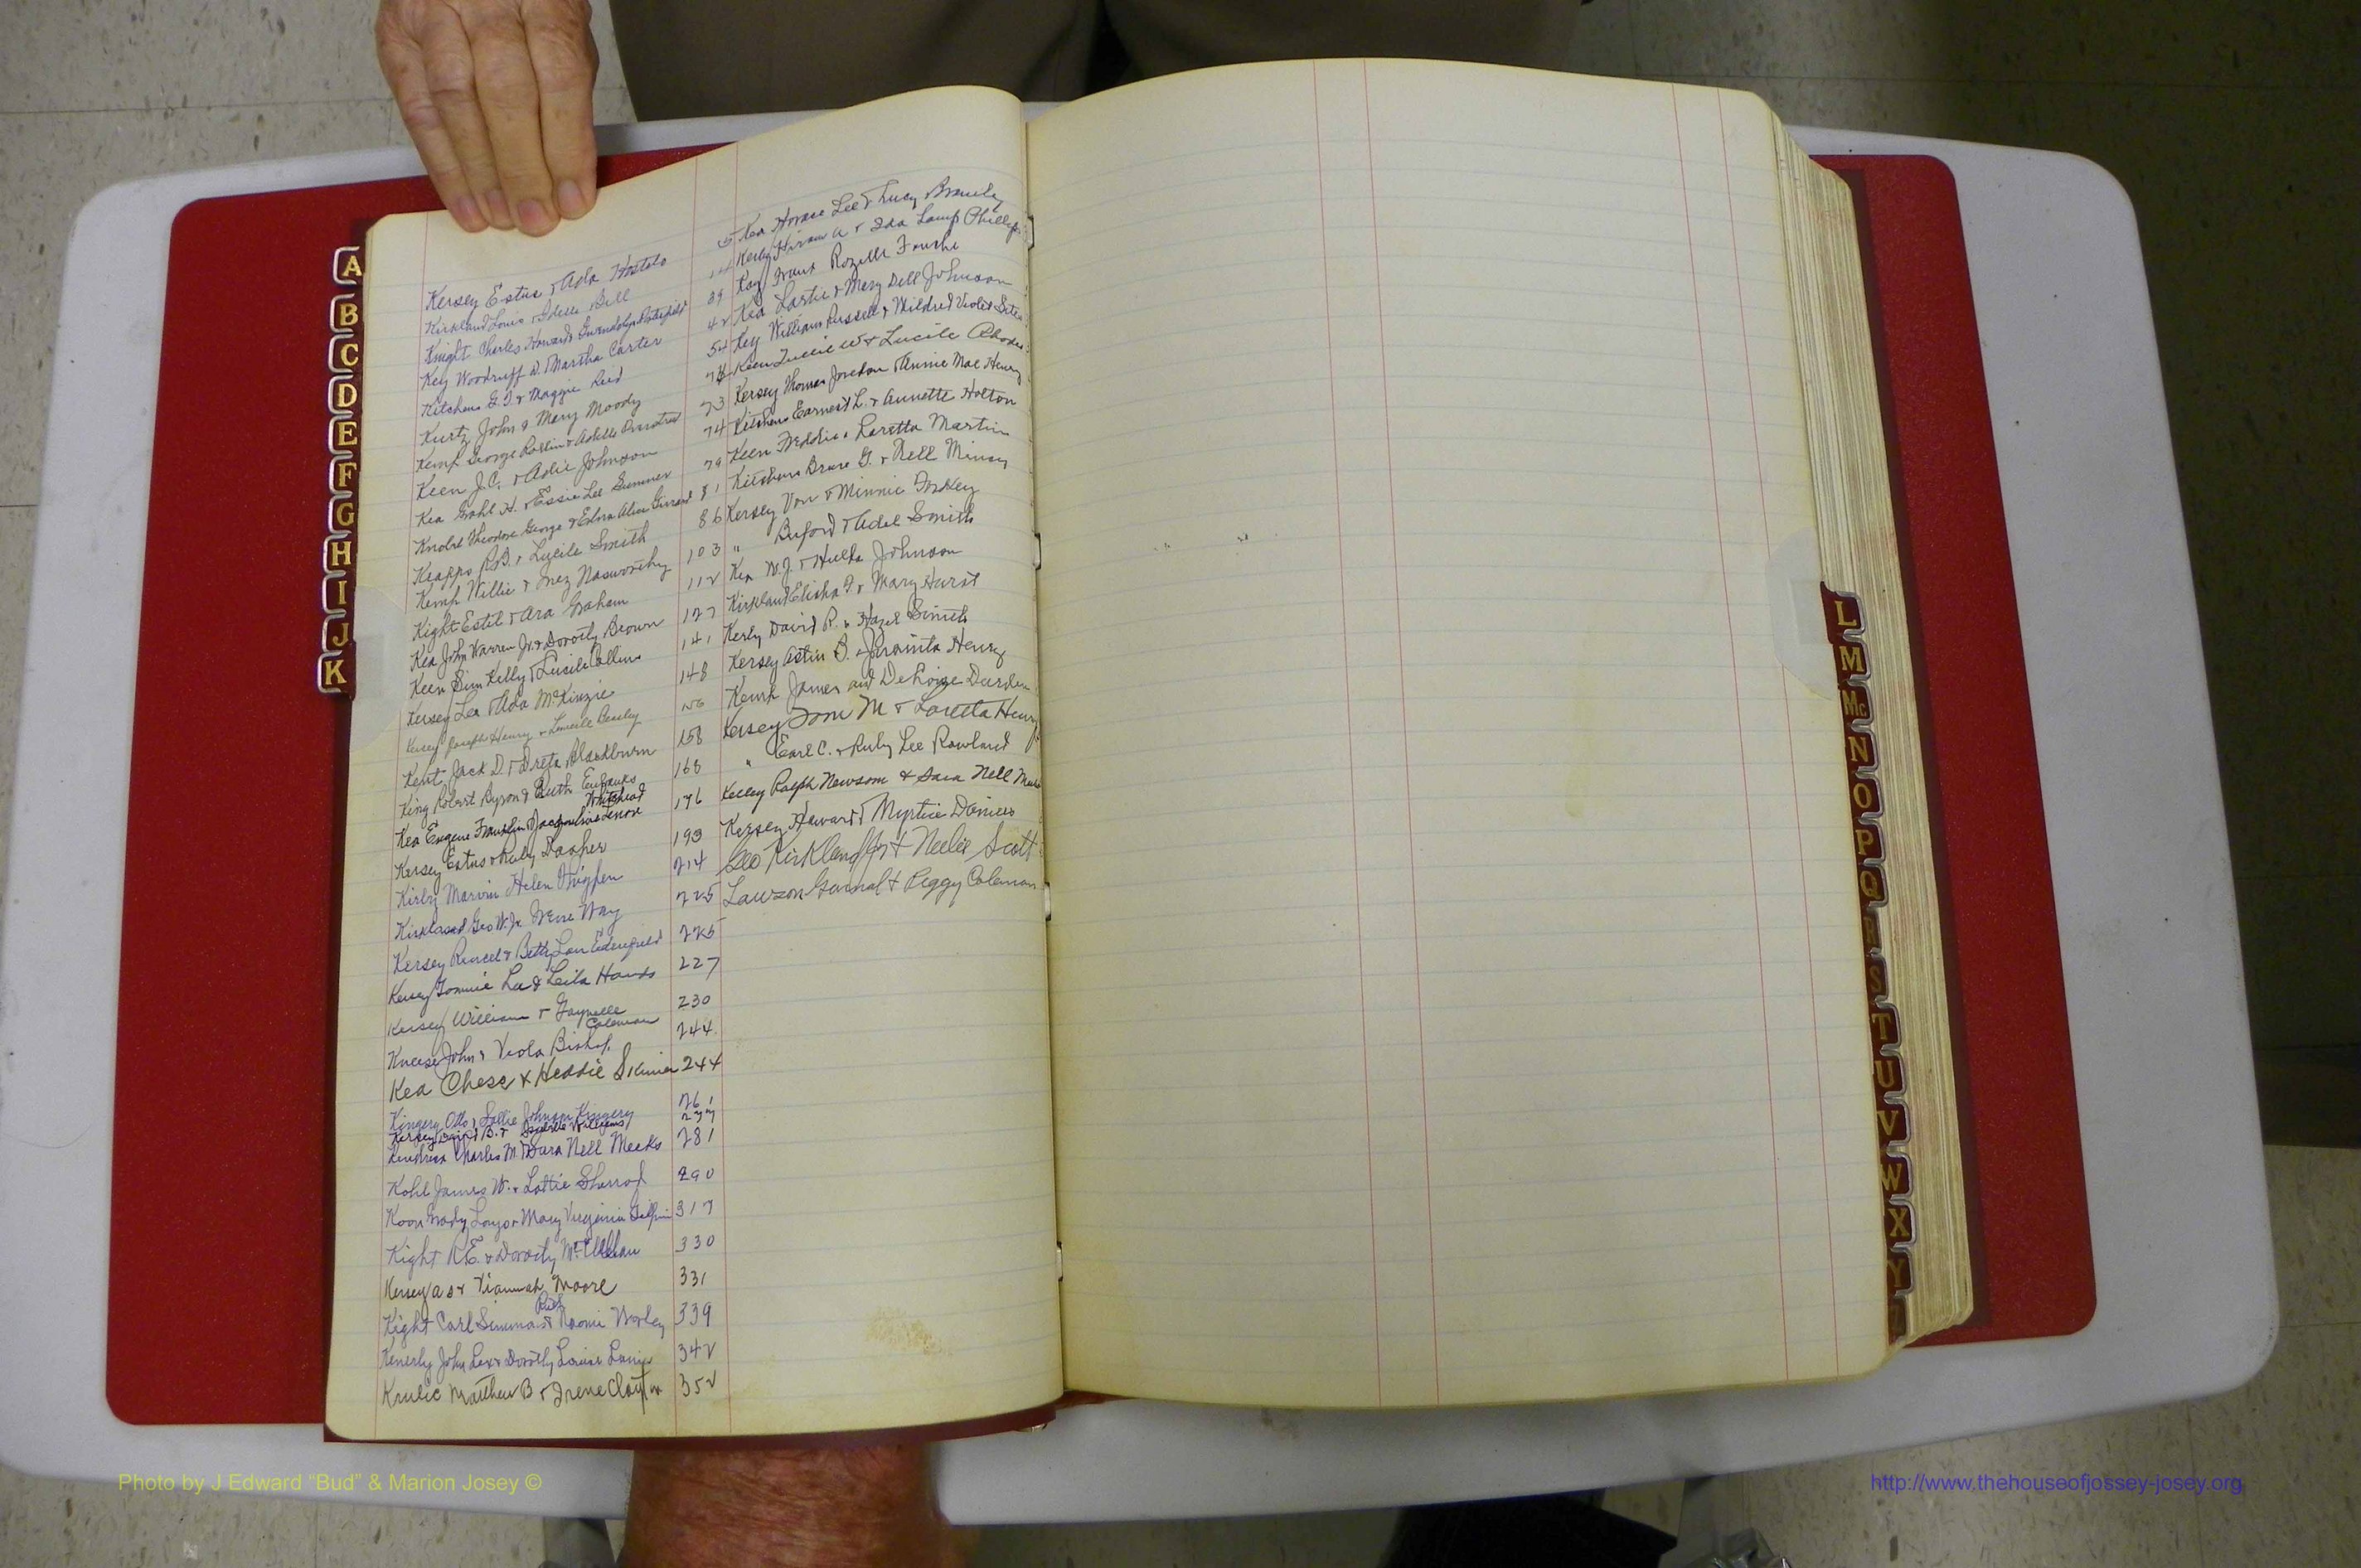 A
B
C
D
E
F
G
H
I
J
K
Kersey Estus & Ada
Kirkland Louis & Idella Bell
Knight Charles Howard & Gwendolyn
Key Woodruff W. & Martha Carter
Kitchens G.T. & Maggie Reid
Kurtz John & Mary Moody
Kemp George
Keen J.C. & Adie Johnson
Kea H. & Essie Lee Sumner
Theodore George & Edna Alice
Keapps R.B. & Lucile Smith
Kemp Willie & Inez Nasworthy
Kight Estil & Ara Graham
Kea John Warren Jr. & Dorothy Brown
Keen Sim Kelly & Lucile Collins
Kersey Lee & Ada McKinzie
Kersey Joseph Henry & Lucile
Kent Jack D. & Blackburn
King Robert Byron & Ruth Eubanks
Whitehead
Kea Eugene Franklin & Jacqueline Lenox
Kersey Estus & Ruby
Kirby Marvin Helen Thigpen
Kirkland Geo W. Jr. Irene Way
Kersey & Betty Lou Edenfield
Kersey Tommie Lee & Leila
Kersey William & Gaynelle
Coleman
John & Viola Bishop
Kea Chess & Heddie
Kingery Otto & Sallie Johnson Kingery
Kersey David B. & Williams
Charles M. & Nell Meeks
Kohl James W. & Lottie Sherrod
Koon Grady & Mary Virginia
Kight R.E. & Dorothy
Kersey & Moore
Ruth
Kight Carl & Naomi Worley
Kenerly John Lex & Dorothy Louise Lanier
Krulic Matthew B & Irene Clayton
5
14
39
42
54
74
73
74
79
81
86
103
112
127
141
148
156
158
168
176
193
214
225
225
227
230
244
244
261
277
281
290
317
330
331
339
342
352
Kea Horace Lee & Lucy
Kerby Hiram A & Ida Phillips
Kay Rozelle
Kea Lastie & Mary Dell Johnson
Key William Russell & Mildred Violet
Keen W & Lucile Rhodes
Kersey Thomas Jordan & Annie Mae Henry
Kitchens Earnest L. & Annette Holton
Keen Freddie & Loretta Martin
Kitchens Bruce G. & Nell Mincey
Kersey Von & Minnie
" Buford & Adel Smith
Kea W.J. & Hulda Johnson
Kirkland Elisha T. & Mary Hurst
Kerly David R. & Hazel Smith
Kersey B. & Juanita Henry
Kemp James and Darden
Kersey Tom M & Loretta Henry
" Earl C. & Ruby Lee Rowland
Kelley Ralph Newsom & Sara Nell
Kersey Howard & Myrtice Daniels
Geo Kirkland Jr & Nelie Scott
Lawson & Peggy Coleman
L
M
Mc
N
O
P
Q
R
S
T
U
V
W
X
Y
Photo by J Edward “Bud” & Marion Josey ©
http://www.thehouseofjossey-josey.org